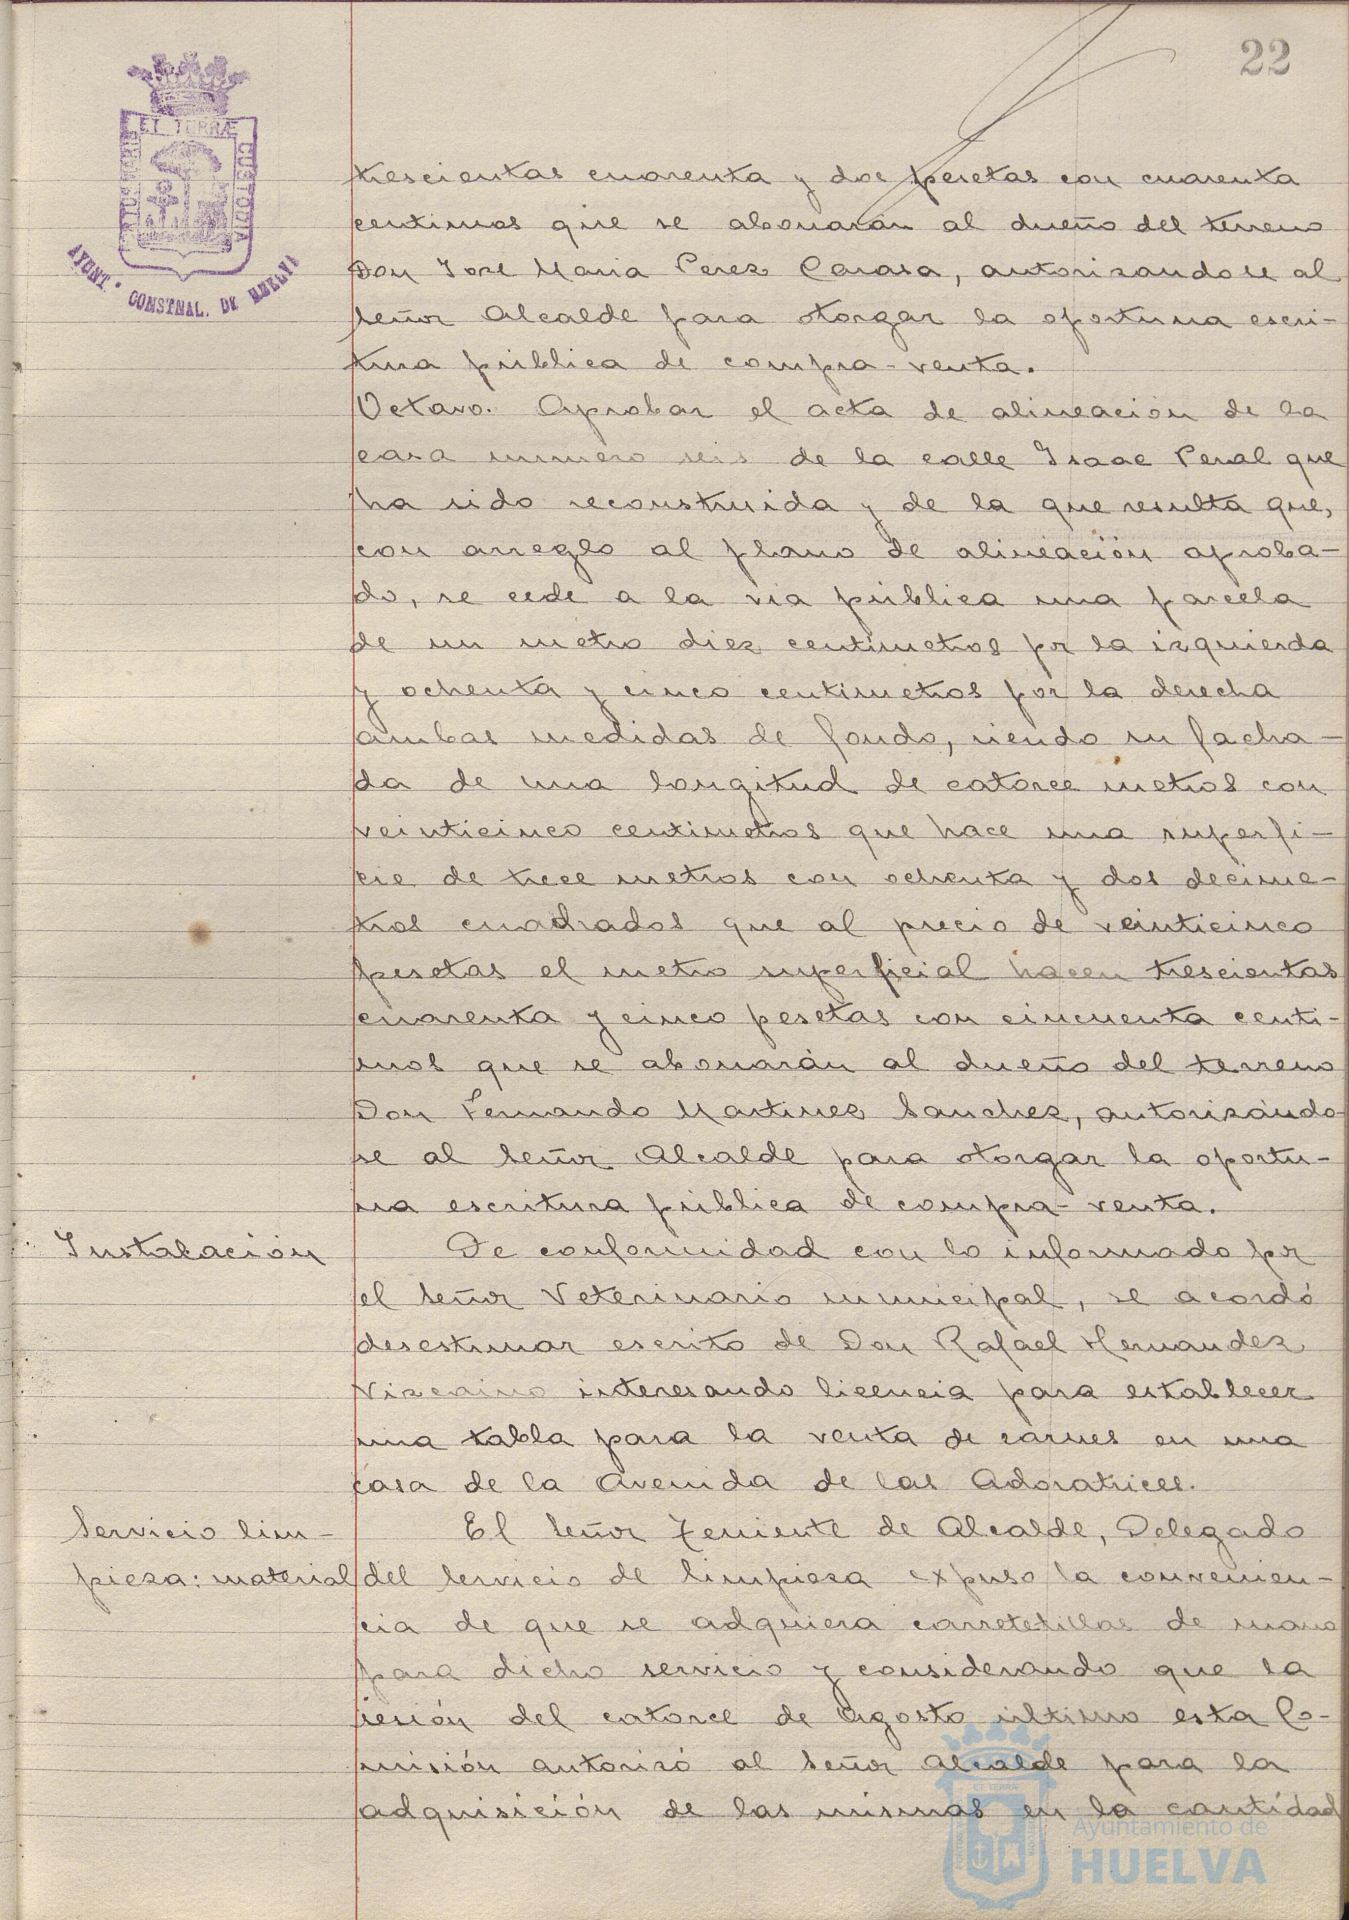 22
PORTUS MARIS ET TERRÆ CUSTODIA
AYUNT.º CONSTNAL. DE HUELVA
trescientas cuarenta y dos pesetas con cuarenta
centimos que se abonarán al dueño del terreno
Don Jose Maria Perez Carasa, autorizandose al
señor Alcalde para otorgar la oportuna escri-
tura pública de compra-venta.
Octavo. Aprobar el acta de alineación de la
casa numero seis de la calle Isaac Peral que
ha sido reconstruida y de la que resulta que,
con arreglo al plano de alineación aproba-
do, se cede a la via pública una parcela
de un metro diez centimetros por la izquierda
y ochenta y cinco centimetros por la derecha
ambas medidas de fondo, siendo su facha-
da de una longitud de catorce metros con
veinticinco centimetros que hace una superfi-
cie de trece metros con ochenta y dos decime-
tros cuadrados que al precio de veinticinco
pesetas el metro superficial hacen trescientas
cuarenta y cinco pesetas con cincuenta centi-
mos que se abonarán al dueño del terreno
Don Fernando Martinez Sanchez, autorizándo-
se al señor Alcalde para otorgar la oportu-
na escritura pública de compra-venta.
Instalación
De conformidad con lo informado por
el señor Veterinario municipal, se acordó
desestimar escrito de Don Rafael Hernandez
Vizcaino interesando licencia para establecer
una tabla para la venta de carnes en una
casa de la Avenida de las Adoratrices.
Servicio lim-
pieza: material
El señor Teniente de Alcalde, Delegado
del servicio de limpieza expuso la convenien-
cia de que se adquiera carretetillas de mano
para dicho servicio y considerando que la
sesión del catorce de Agosto último esta Co-
misión autorizó al señor Alcalde para la
adquisición de las mismas en la cantidad
Ayuntamiento de
HUELVA